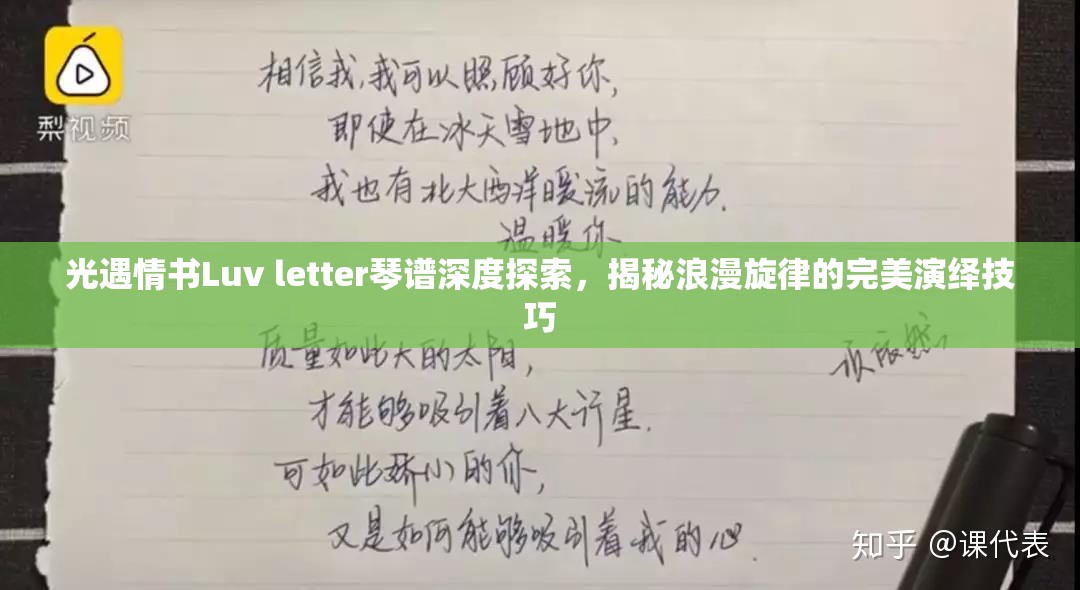 梨视频
相信我,我可以照顾好你,
即使在冰天雪地中,
我也有北大西洋暖流的能力.
温暖你
光遇情书Luv letter琴谱深度探索，揭秘浪漫旋律的完美演绎技
巧
质量如此大的太阳,
才能够吸引着八大行星.
可如此娇小的你,
又是如何能够吸引着我的心.
知乎 @课代表